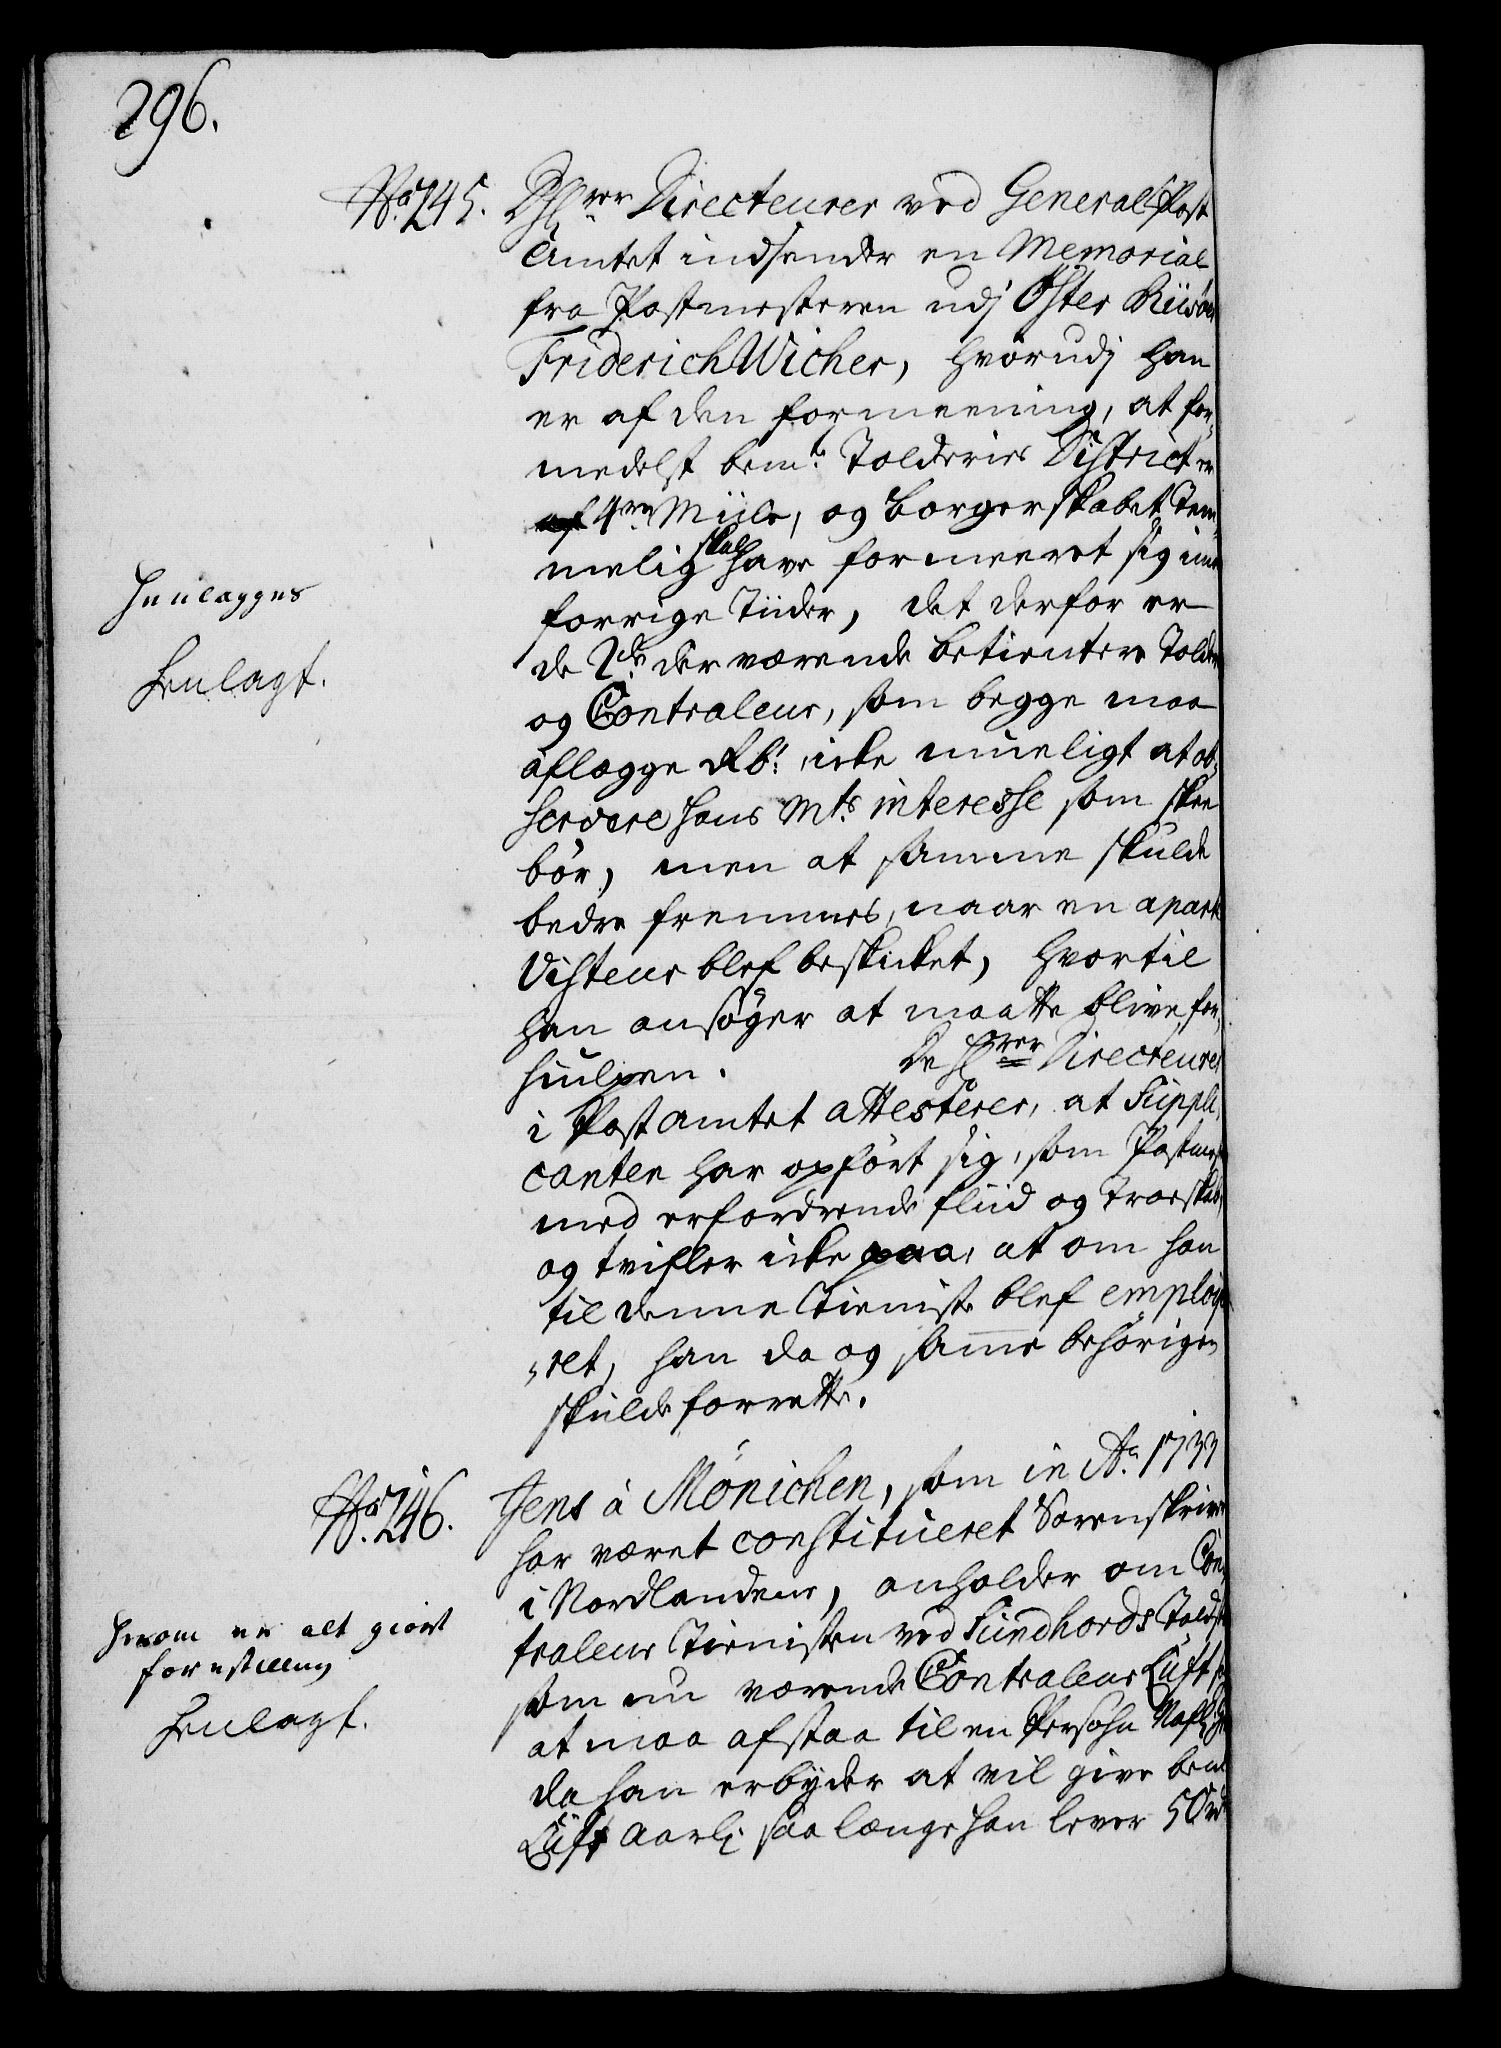 296.
No. 245. Dhrr Directeurer ved General Post
Amtet indsender en Memorial
fra Postmesteren udj Öster Riisöer
Friderich Wicher, hvorudj han
er af den formeening, at for,
medelst bemte Tolderies District er
af 4re Miile, og borgerskabet Tem,
melig skal have formeeret sig imod
forrige Tiider, det derfor er
de 2de der værende betientere Tolder
og Contraleur, som begge maa
aflægge Rb: icke mueligt at ob,
servere hans Mts interesse som skee
bör, men at samme skulde
bedre fremmes, naar en apart
Visiteur blef beskicket, hvortil
han ansöger at maatte blive for,
hiulpen. De Hrrer Directeurer
i Post amtet attesterer, at Suppli,
canten har opfört sig, som Postmester
med erfordrende fliid og Troeskab,
og tvifler icke paa, at om han
til denne Tieniste blef emploie,
,ret, han da og samme behörigen
skulde forrette.
Henlegges
Henlagt.
No. 246. Jens à Mönichen, som in Ao. 1733
har været constitueret Sorenskriver
i Nordlandene, anholder om Con,
traleur Tienisten ved Sundhords Tolds
som nu værende Contraleur Lüft
at maa afstaa til en Persohn
da han erbyder at vil give bemte
Lüft aarli: saa længe han lever 50 rd
Herom er alt giort
forestilling
Henlagt.